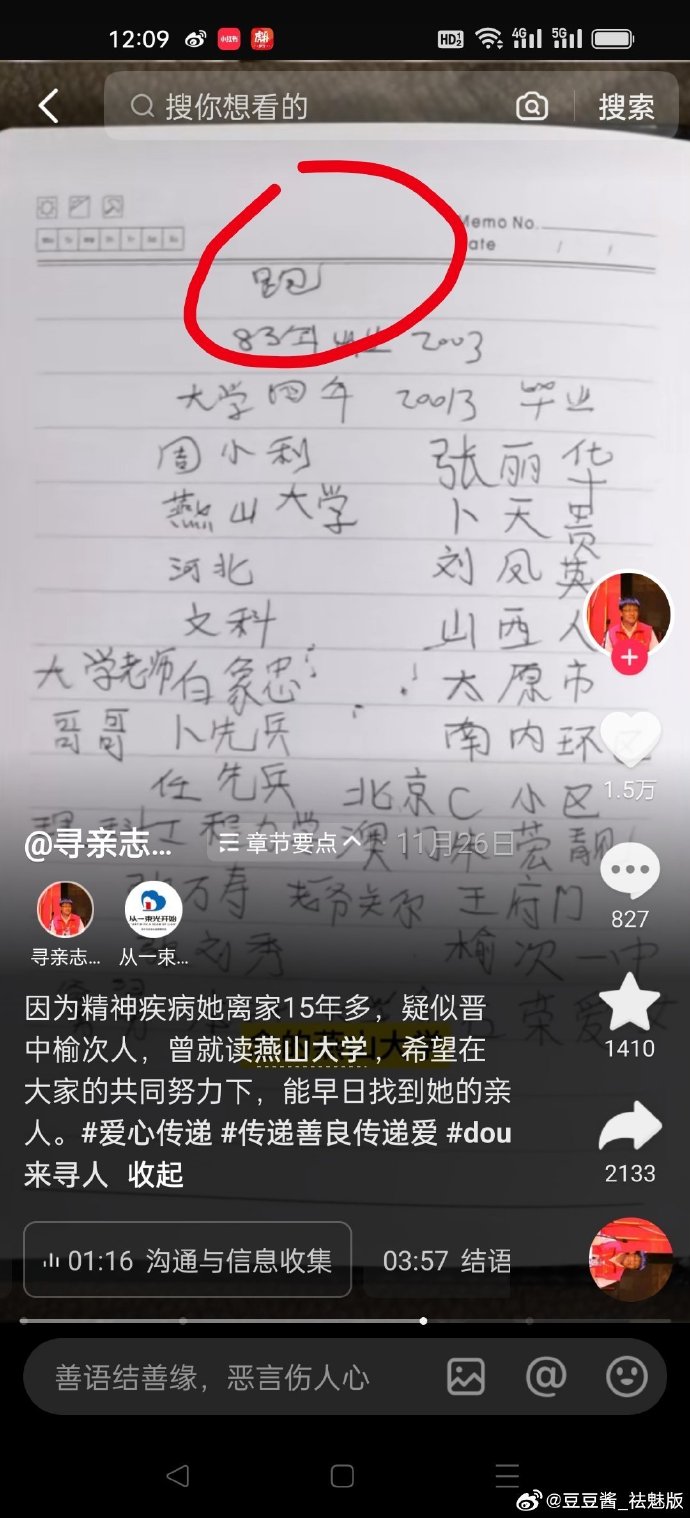 12:09 HD 4G 5G
搜你想看的 搜索
Memo No.
Date / /
跑
83年毕业 2003
大学四年 20013 毕业
周小利 张丽华
燕山大学 卜天贵
河北 刘凤英
文科 山西人
大学老师白象忠 太原市
哥哥 卜先兵 南内环区
任先兵 北京C小区
1.5万
@寻亲志... 章节要点 · 11月26日
万寿 王府门
827
刘秀 榆次一中
寻亲志... 从一束...
从一束光开始
荣爱女
因为精神疾病她离家15年多，疑似晋
中榆次人，曾就读燕山大学，希望在
大家的共同努力下，能早日找到她的亲
人。#爱心传递 #传递善良传递爱 #dou
来寻人 收起
的燕山大学
1410
2133
01:16 沟通与信息收集 03:57 结语
善语结善缘，恶言伤人心
@豆豆酱_祛魅版